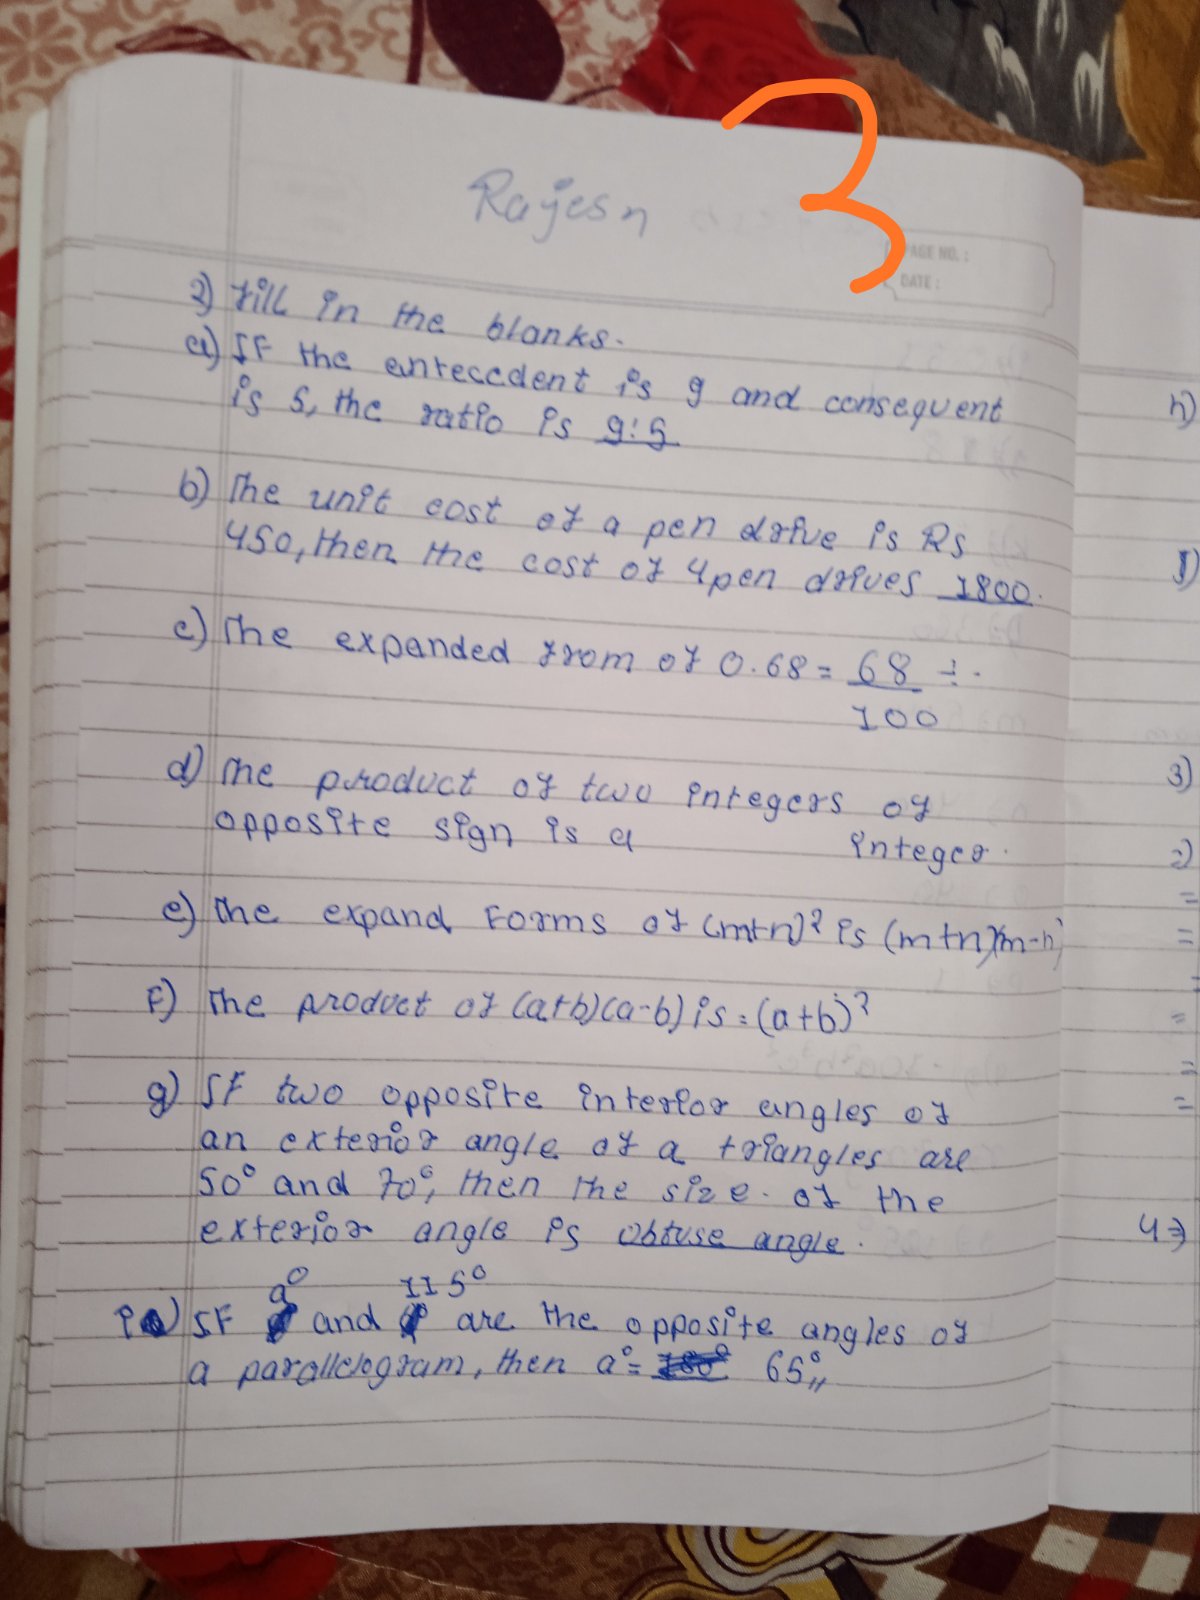 3
Rajesh
PAGE NO. :
DATE :
2) Fill in the blanks.
a) If the antecedent is 9 and consequent
is 5, the ratio is 9:5
b) The unit cost of a pen drive is Rs
450, then the cost of 4 pen drives 1800.
c) The expanded from of 0.68 = 68/100 ÷.
d) The product of two integers of
opposite sign is a integer.
e) The expand Forms of (m+n)² is (m+n)(m-n)
F) The product of (a+b)(a-b) is = (a+b)²
g) If two opposite interior angles of
an exterior angle of a triangles are
50° and 70°, then the size. of the
exterior angle is obtuse angle.
a° 115°
If and are the opposite angles of
a parallelogram, then a° = 180° 65°,,
h)
3)
2)
=
=
=
=
=
=
4⇒